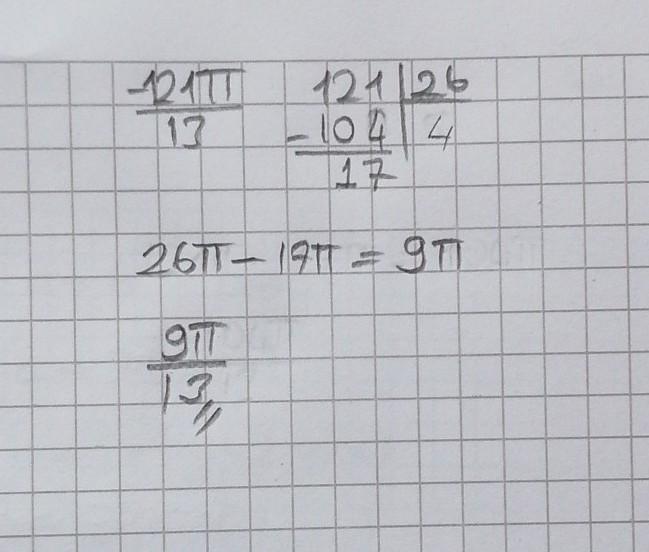 -121π / 13
121 | 26
-104 | 4
17
26π - 17π = 9π
9π / 13 //